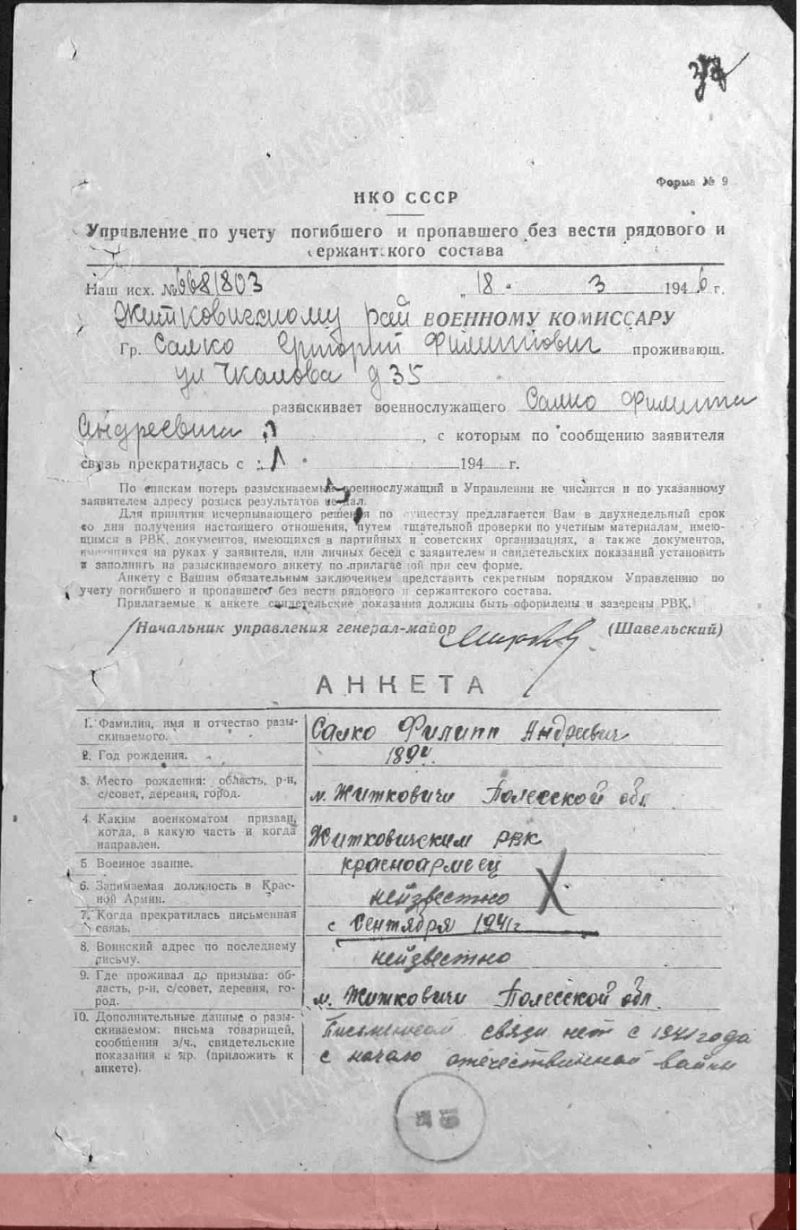 37
Форма № 9
НКО СССР
Управление по учету погибшего и пропавшего без вести рядового и
сержантского состава
Наш исх. № 668/803 „18" 3 1946 г.
Житковичскому рай ВОЕННОМУ КОМИССАРУ
Гр. Салко Григорий Филиппович проживающ.
ул Чкалова д 35
разыскивает военнослужащего Салко Филиппа
Андреевича, с которым по сообщению заявителя
связь прекратилась с 194 г.
По спискам потерь разыскиваемый военнослужащий в Управлении не числится и по указанному
заявителем адресу розыск результатов не дал.
Для принятия исчерпывающего решения по существу предлагается Вам в двухнедельный срок
со дня получения настоящего отношения, путем тщательной проверки по учетным материалам, имею-
щимся в РВК, документов, имеющихся в партийных и советских организациях, а также документов,
имеющихся на руках у заявителя, или личных бесед с заявителем и свидетельских показаний установить
и заполнить на разыскиваемого анкету по прилагаемой при сем форме.
Анкету с Вашим обязательным заключением представить секретным порядком Управлению по
учету погибшего и пропавшего без вести рядового и сержантского состава.
Прилагаемые к анкете свидетельские показания должны быть оформлены и заверены РВК.
Начальник управления генерал-майор (Шавельский)
АНКЕТА
1. Фамилия, имя и отчество разы-
скиваемого. Салко Филипп Андреевич
2. Год рождения. 1894
3. Место рождения: область, р-н,
с/совет, деревня, город. м. Житковичи Полесской обл
4. Каким военкоматом призван,
когда, в какую часть и когда
направлен. Житковичским РВК
5. Военное звание. красноармеец
6. Занимаемая должность в Крас-
ной Армии. неизвестно
7. Когда прекратилась письменная
связь. с Сентября 1941г
8. Воинский адрес по последнему
письму. неизвестно
9. Где проживал до призыва: об-
ласть, р-н, с/совет, деревня, го-
род. м. Житковичи Полесской обл.
10. Дополнительные данные о разы-
скиваемом: письма товарищей,
сообщения з/ч., свидетельские
показания и пр. (приложить к
анкете). Письменной связи нет с 1941 года
с начало отечественной вайны